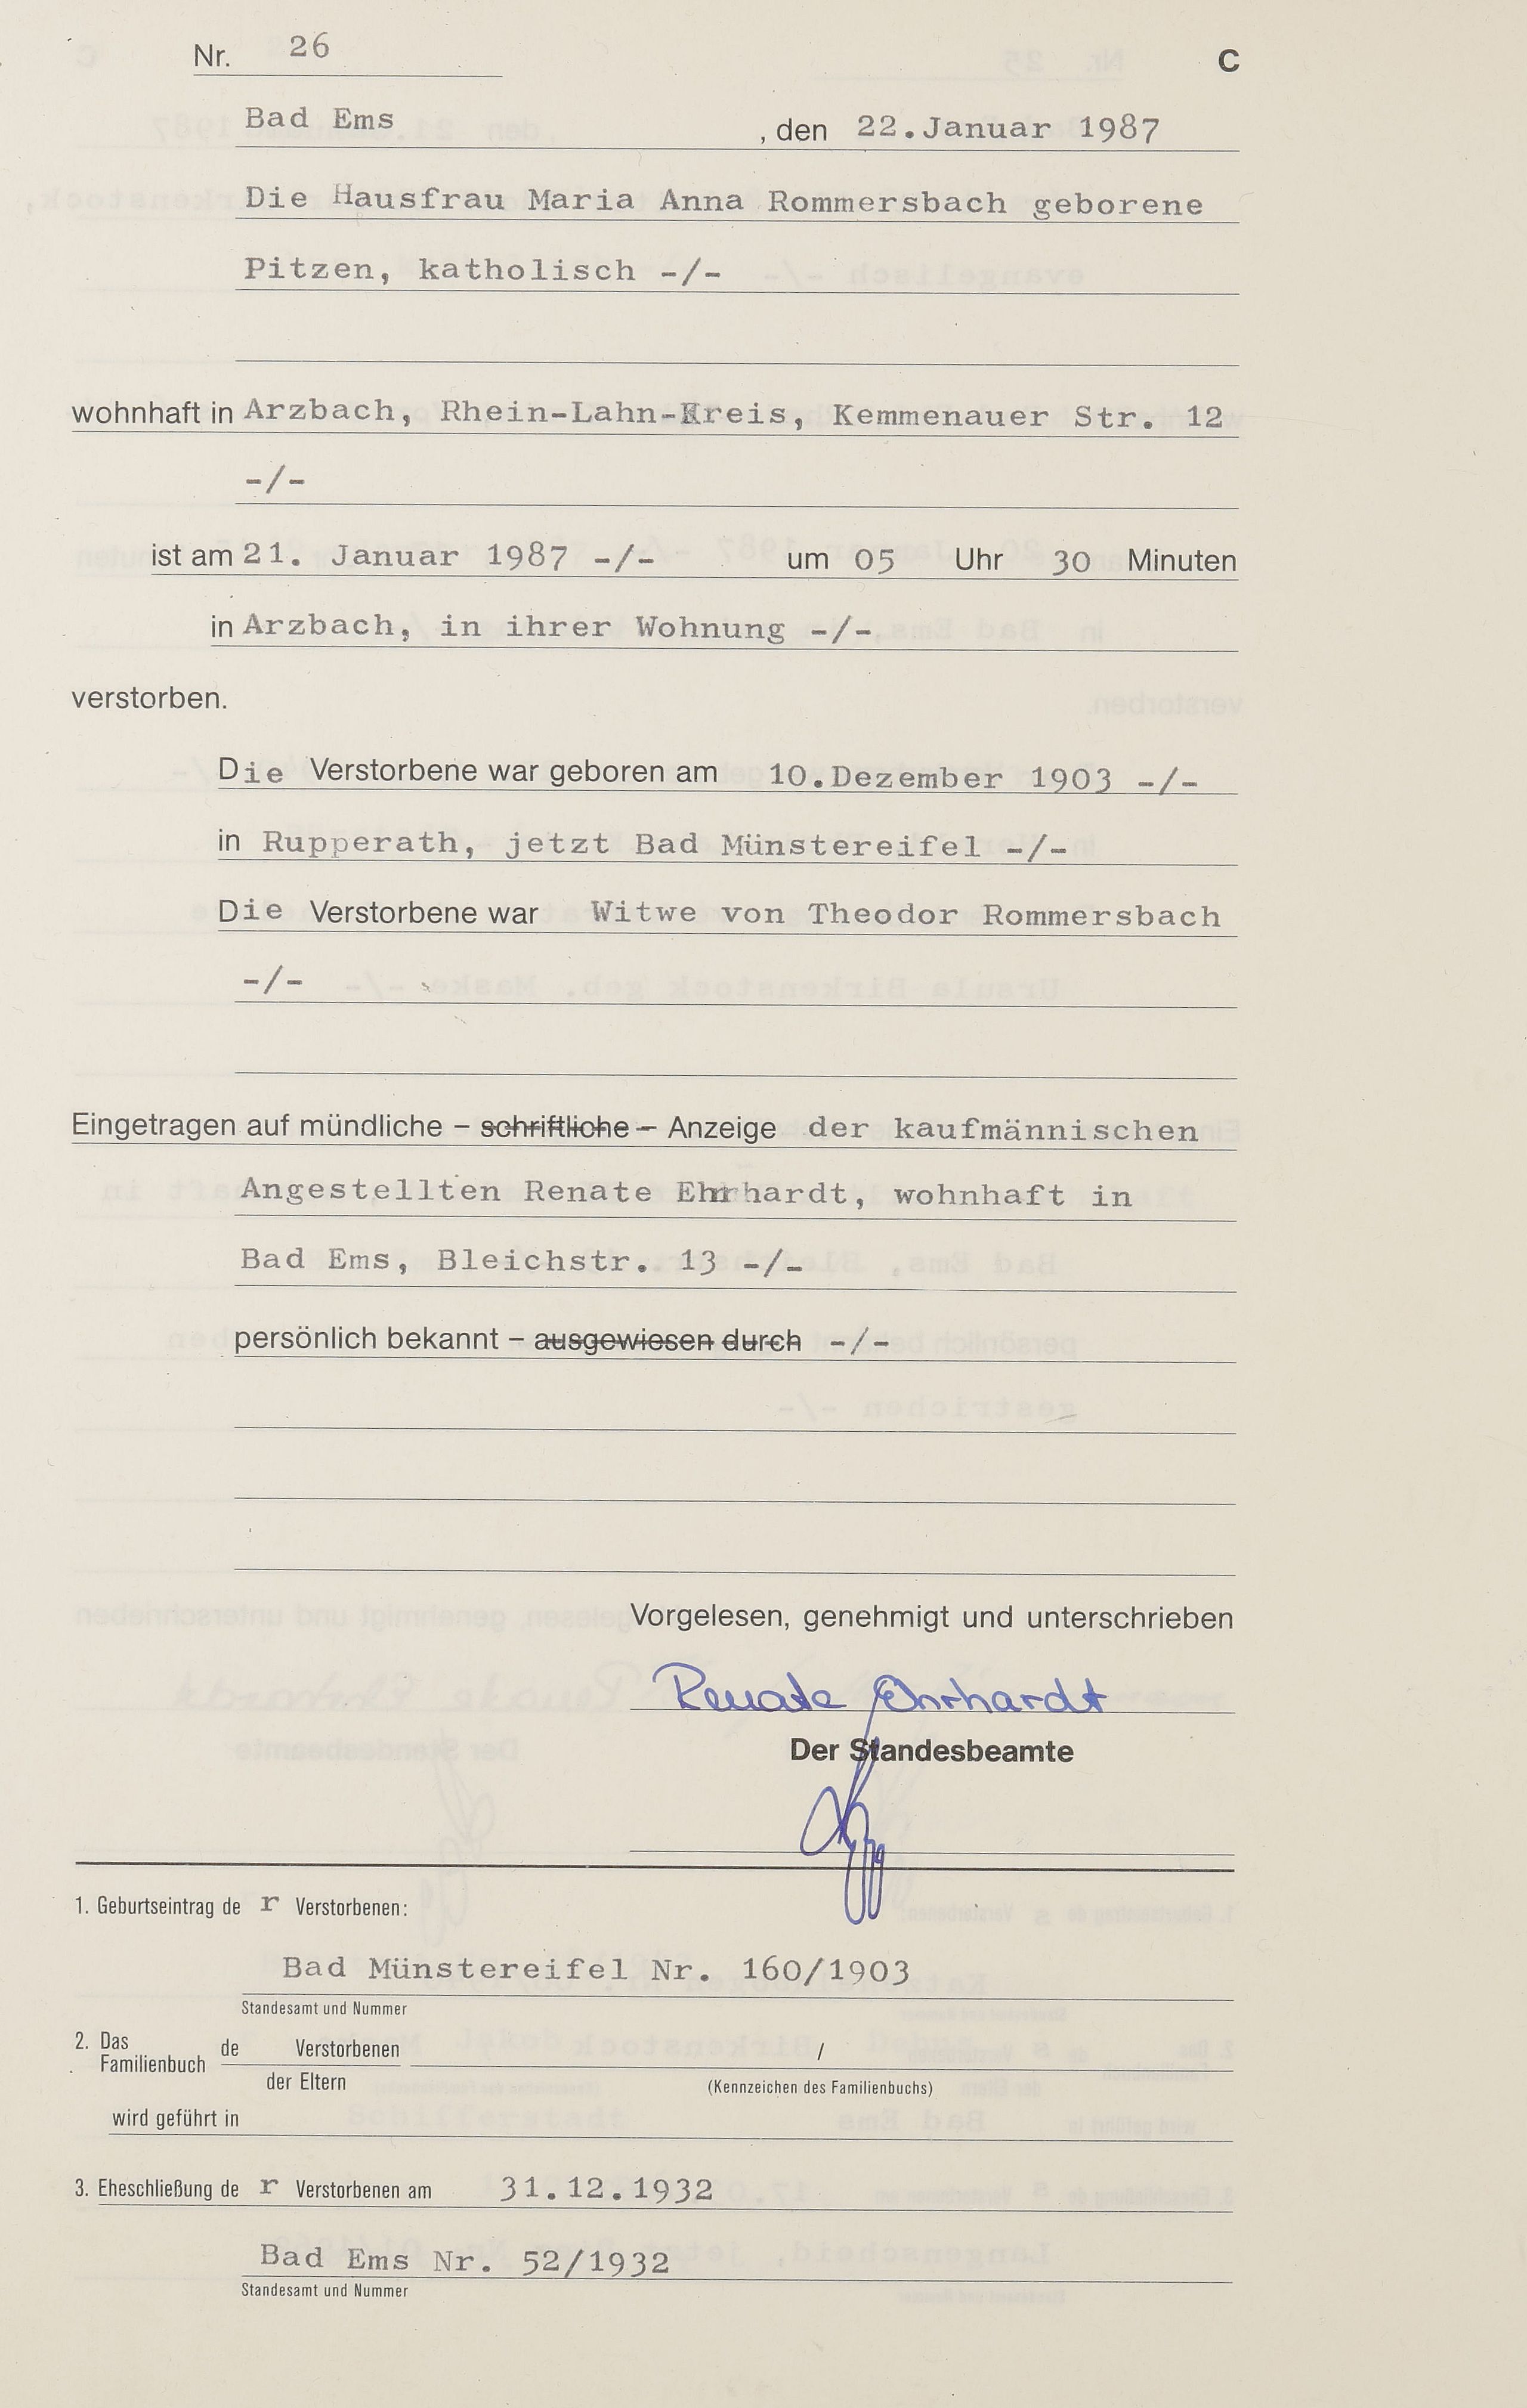 Nr. 26 C
Bad Ems , den 22.Januar 1987
Die Hausfrau Maria Anna Rommersbach geborene
Pitzen, katholisch -/-
wohnhaft in Arzbach, Rhein-Lahn-Kreis, Kemmenauer Str. 12
-/-
ist am 21. Januar 1987 -/- um 05 Uhr 30 Minuten
in Arzbach, in ihrer Wohnung -/-
verstorben.
Die Verstorbene war geboren am 10.Dezember 1903 -/-
in Rupperath, jetzt Bad Münstereifel -/-
Die Verstorbene war Witwe von Theodor Rommersbach
-/-
Eingetragen auf mündliche – schriftliche – Anzeige der kaufmännischen
Angestellten Renate Ehrhardt, wohnhaft in
Bad Ems, Bleichstr. 13 -/-
persönlich bekannt – ausgewiesen durch -/-
Vorgelesen, genehmigt und unterschrieben
Renate Ehrhardt
Der Standesbeamte
1. Geburtseintrag de r Verstorbenen:
Bad Münstereifel Nr. 160/1903
Standesamt und Nummer
2. Das Familienbuch de Verstorbenen /
der Eltern (Kennzeichen des Familienbuchs)
wird geführt in
3. Eheschließung de r Verstorbenen am 31.12.1932
Bad Ems Nr. 52/1932
Standesamt und Nummer